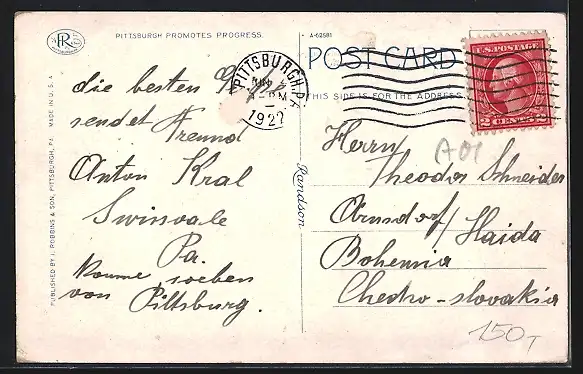 PITTSBURGH PROMOTES PROGRESS.
A-62581
POST CARD
THIS SIDE IS FOR THE ADDRESS
PUBLISHED BY I. ROBBINS & SON, PITTSBURGH, PA. MADE IN U. S. A
PITTSBURGH, PA.
1922
U.S. POSTAGE
2 CENTS 2
die besten
sendet Freund
Anton Kral
Swissvale
Pa.
Komme soeben
von Pittsburg.
Randson
A01
Herrn
Theodor Schneider
Arnsdorf / Haida
Bohemia
Checko-slovakia
150